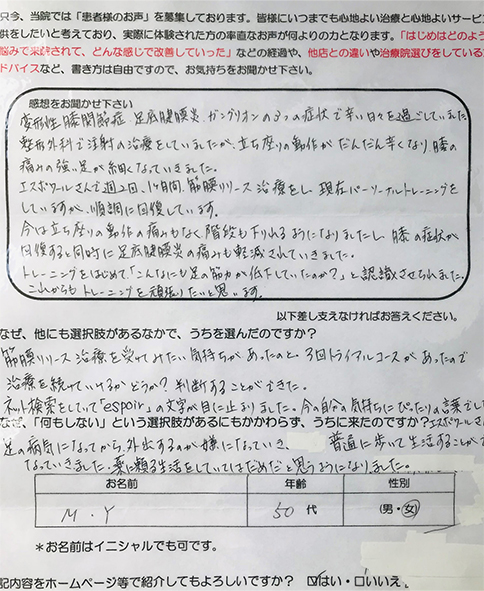 只今、当院では「患者様のお声」を募集しております。皆様にいつまでも心地よい治療と心地よいサービ
供をしたいと考えており、実際に体験された方の率直なお声が何よりの力となります。「はじめはどのよう
悩みで来院されて、どんな感じで改善していった」などの経過や、他店との違いや治療院選びをしている方
ドバイスなど、書き方は自由ですので、お気持ちをお聞かせ下さい。
感想をお聞かせ下さい
変形性膝関節症、足底腱膜炎、ガングリオンの3つの症状で辛い日々を過ごしていました。
整形外科で注射の治療をしていましたが、立ち座りの動作がだんだん辛くなり、膝の
痛みの強い足が細くなっていきました。
エスポワールさんで週2回、1ヶ月間、筋膜リリース治療をし、現在パーソナルトレーニングを
していますが、順調に回復しています。
今は立ち座りの動作の痛みもなく階段も下りれるようになりましたし、膝の症状が
回復すると同時に足底腱膜炎の痛みも軽減されていきました。
トレーニングをはじめて「こんなにも足の筋力が低下していたのか?」と認識させられました。
これからもトレーニングを頑張りたいと思います。
以下差し支えなければお答えください。
なぜ、他にも選択肢があるなかで、うちを選んだのですか?
筋膜リリース治療を受てみたい気持ちがあったのと、3回トライアルコースがあったので
治療を続けていけるかどうか?判断することができた。
ネット検索をしていて「espoir」の文字が目に止まりました。今の自分の気持ちにぴったりの言葉でした
なぜ、「何もしない」という選択肢があるにもかかわらず、うちに来たのですか?エスポワールさ
足の病気になってから、外出するのが嫌になっていき、普通に歩いて生活することがで
なっていきました。薬に頼る生活をしていてはだめだと思うようになりました。
お名前 年齢 性別
M・Y 50代 (男・女)
*お名前はイニシャルでも可です。
記内容をホームページ等で紹介してもよろしいですか? ☑はい・□いいえ